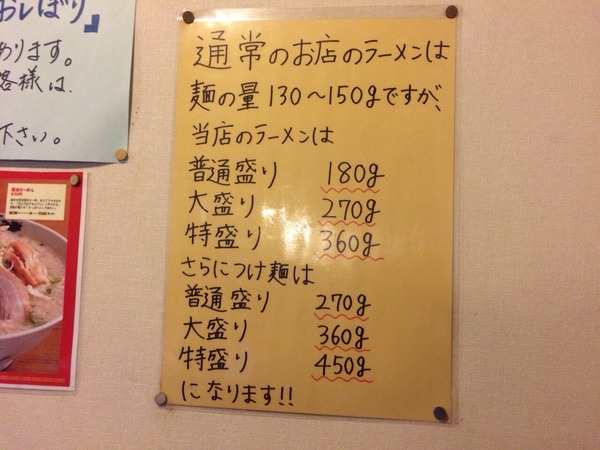 おしぼり』
あります。
客様は、
下さい。
通常のお店のラーメンは
麺の量130〜150gですが、
当店のラーメンは
普通盛り 180g
大盛り 270g
特盛り 360g
さらにつけ麺は
普通盛り 270g
大盛り 360g
特盛り 450g
になります!!